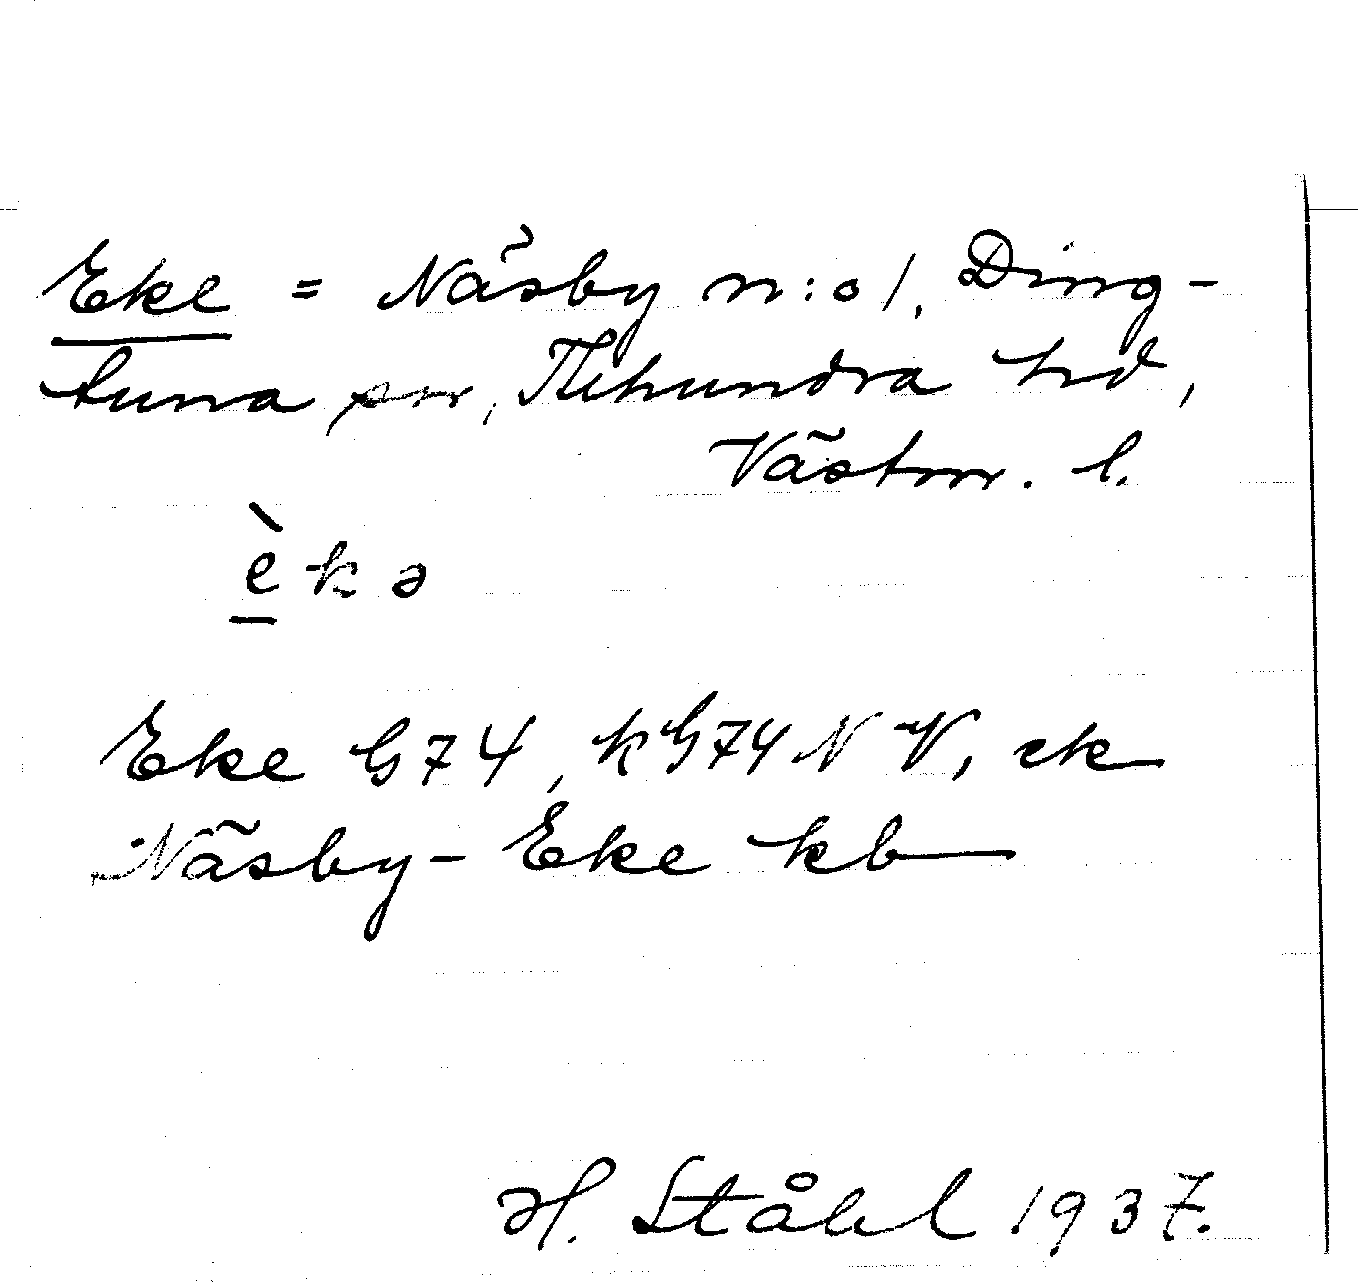 Eke = Näsby n:o 1, Ding-
tuna sn, Tuhundra hd,
Västm. l.
èkə
Eke G74, kG74 NV, ek
Näsby-Eke kb
H. Ståhl 1937.